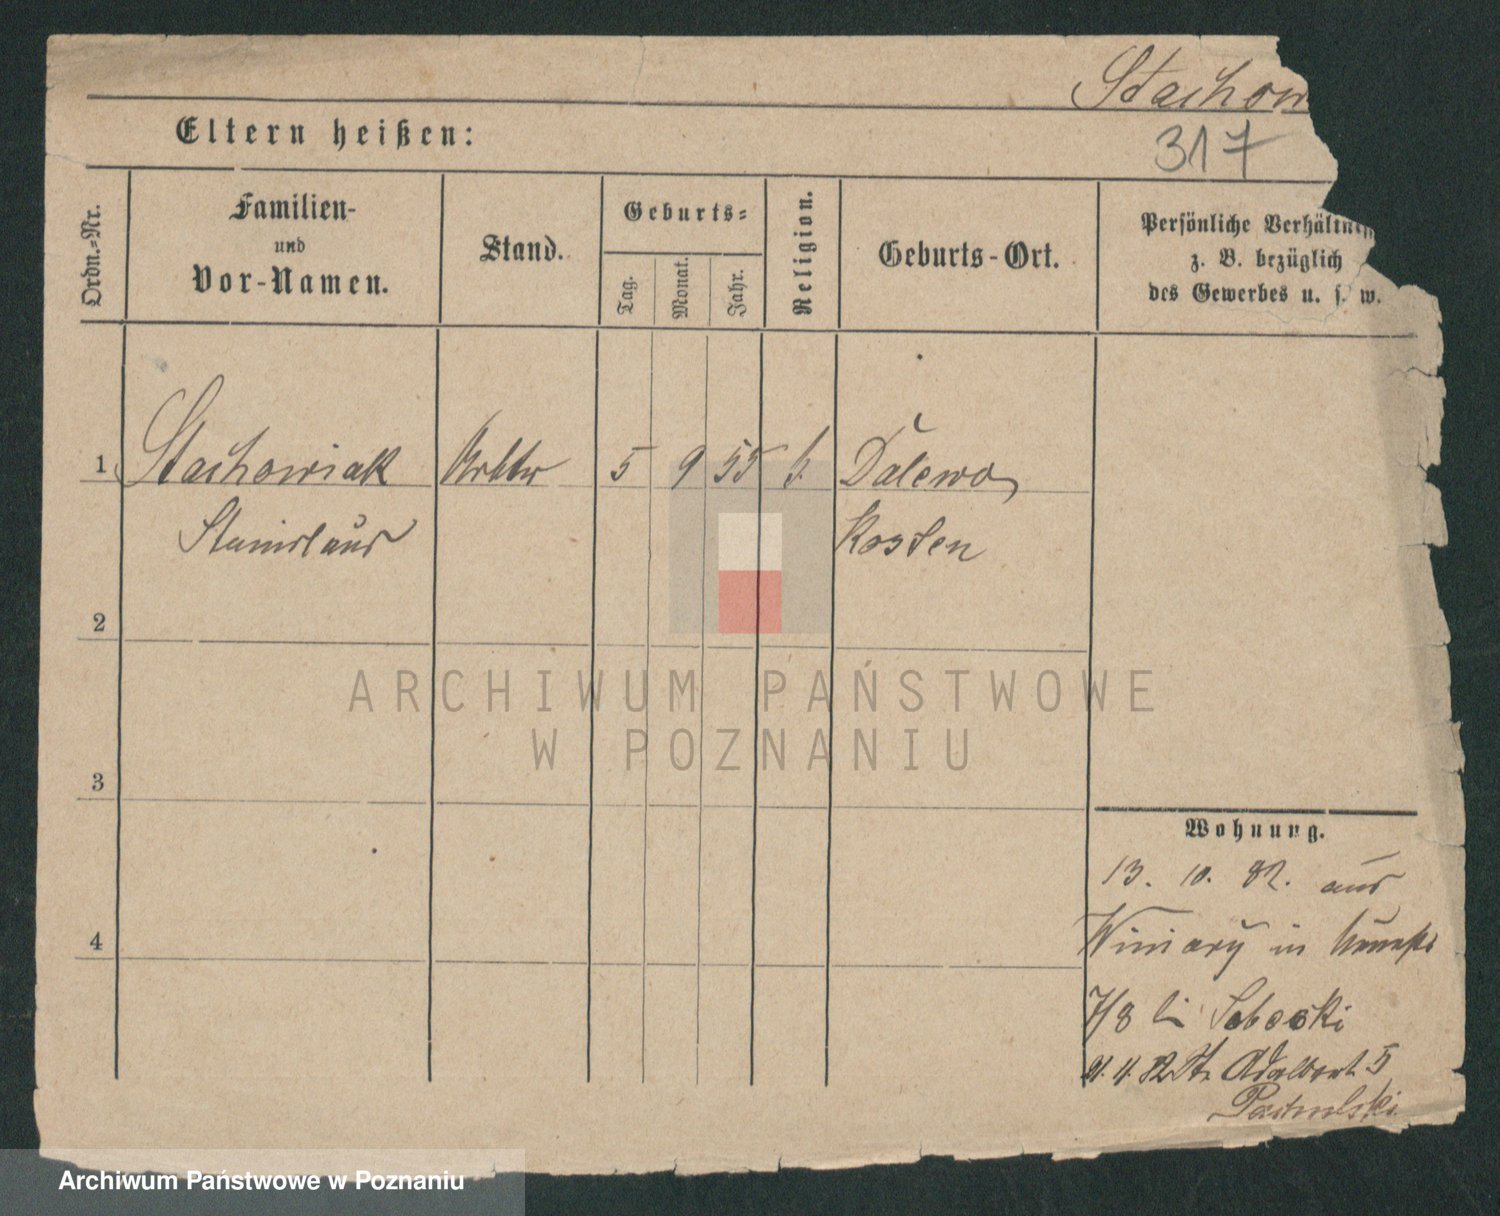 Stachow
Eltern heißen:
317
Ordn.-Nr.
Familien-
und
Vor-Namen.
Stand.
Geburts-
Tag.
Monat.
Jahr.
Religion.
Geburts-Ort.
Persönliche Verhältniss
z. B. bezüglich
des Gewerbes u. s. w.
1 Stachowiak Arbtr 5 9 55 k. Dalewo
Stanislaus Kosten
2
3
4
ARCHIWUM PAŃSTWOWE
W POZNANIU
Wohnung.
13. 10. 82. aus
Winiary in
7/8 bei
11. 82 St. Adalbert 5
Archiwum Państwowe w Poznaniu